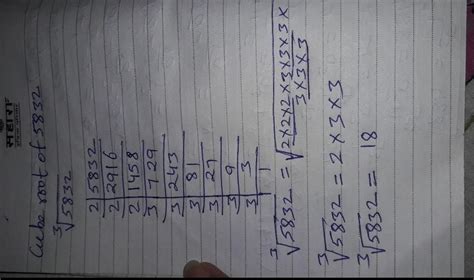 सहारा
Cube root of 5832
³√5832
2 | 5832
2 | 2916
2 | 1458
3 | 729
3 | 243
3 | 81
3 | 27
3 | 9
3 | 3
1
³√5832 = √2×2×2×3×3×3×
3×3×3
³√5832 = 2×3×3
³√5832 = 18